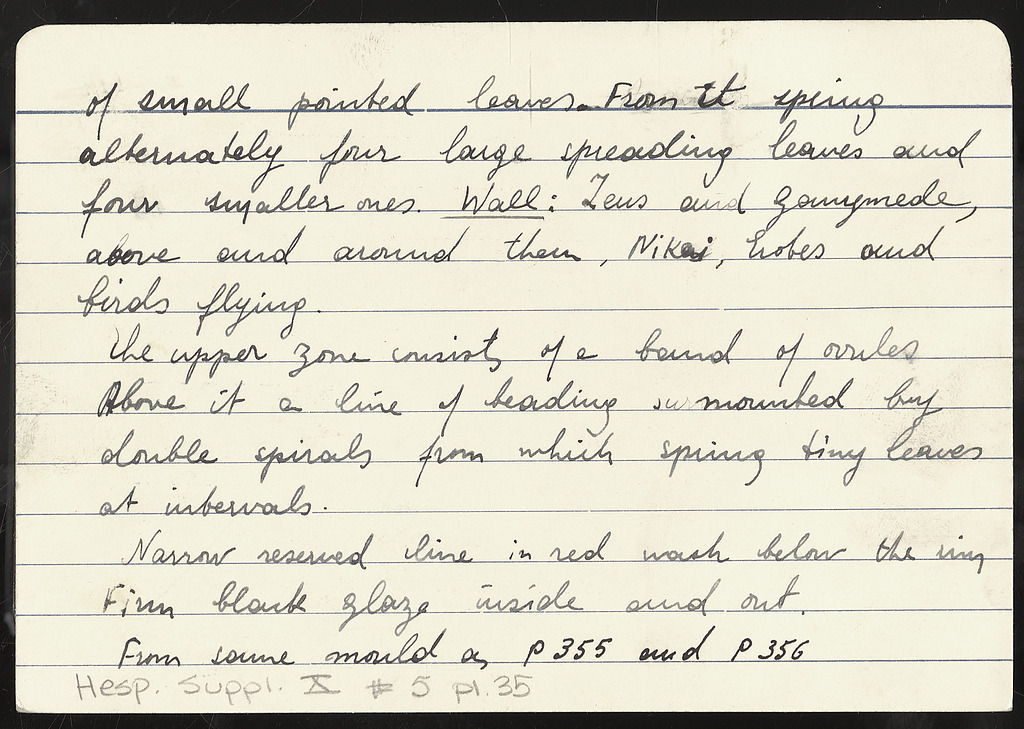 of small pointed leaves. From it spring
alternately four large spreading leaves and
four smaller ones. Wall: Zeus and Ganymede,
above and around them, Nikai, Erotes and
birds flying.
The upper zone consists of a band of ovules
Above it a line of beading surmounted by
double spirals from which spring tiny leaves
at intervals.
Narrow reserved line in red wash below the rim
Firm black glaze inside and out.
From same mould as P 355 and P 356
Hesp. Suppl. X # 5 pl. 35